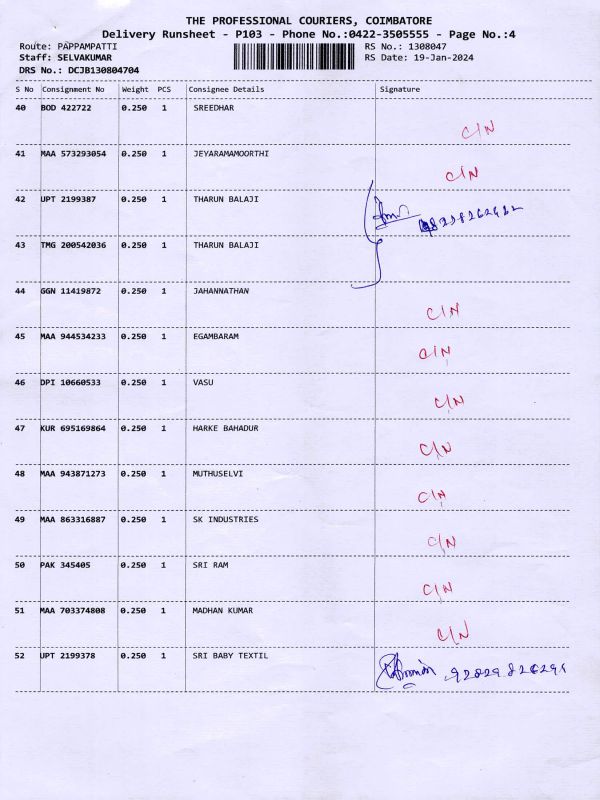 THE PROFESSIONAL COURIERS, COIMBATORE
Delivery Runsheet - P103 - Phone No.:0422-3505555 - Page No.:4
Route: PAPPAMPATTI RS No.: 1308047
Staff: SELVAKUMAR RS Date: 19-Jan-2024
DRS No.: DCJB130804704
S No Consignment No Weight PCS Consignee Details Signature
40 BOD 422722 0.250 1 SREEDHAR
C/N
41 MAA 573293054 0.250 1 JEYARAMAMOORTHI
C/N
42 UPT 2199387 0.250 1 THARUN BALAJI
43 TMG 200542036 0.250 1 THARUN BALAJI
44 GGN 11419872 0.250 1 JAHANNATHAN
C/N
45 MAA 944534233 0.250 1 EGAMBARAM
C/N
46 DPI 10660533 0.250 1 VASU
C/N
47 KUR 695169864 0.250 1 HARKE BAHADUR
C/N
48 MAA 943871273 0.250 1 MUTHUSELVI
C/N
49 MAA 863316887 0.250 1 SK INDUSTRIES
C/N
50 PAK 345405 0.250 1 SRI RAM
C/N
51 MAA 703374808 0.250 1 MADHAN KUMAR
C/N
52 UPT 2199378 0.250 1 SRI BABY TEXTIL